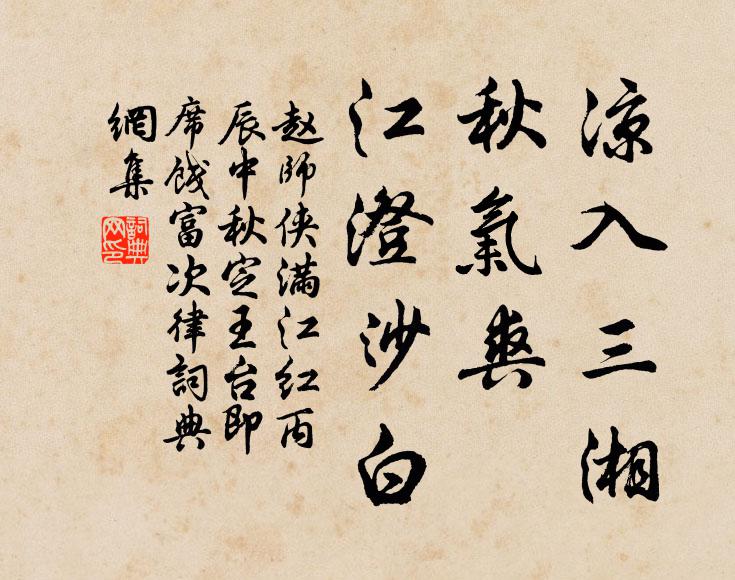 凉入三湘
秋氣爽
江澄沙白
赵師侠満江红丙
辰中秋定王台即
席餞富次律詞典
網集
詞典
网印